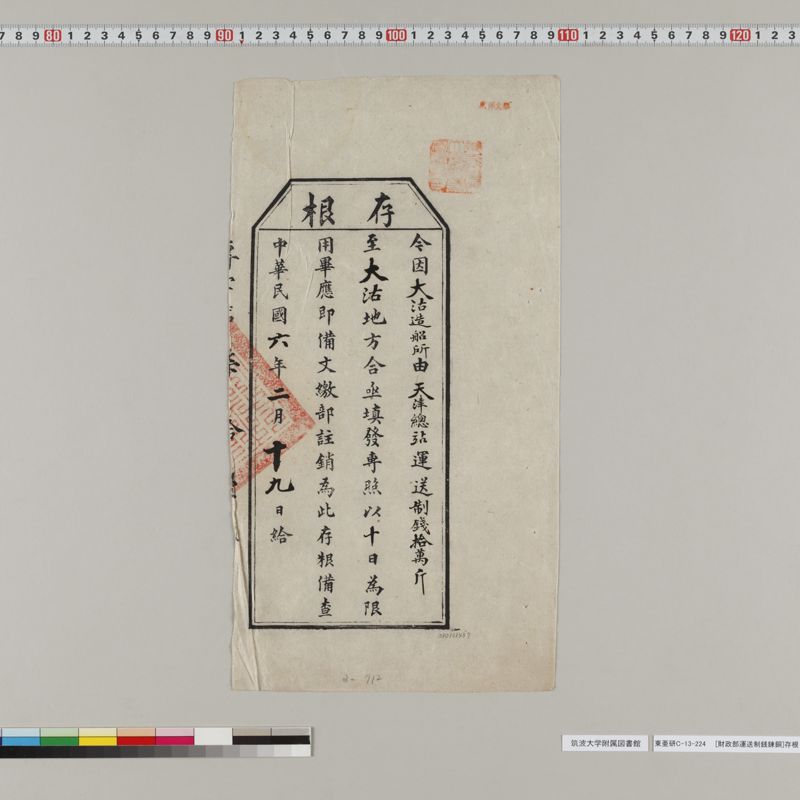 7 8 9 80 1 2 3 4 5 6 7 8 9 90 1 2 3 4 5 6 7 8 9 100 1 2 3 4 5 6 7 8 9 110 1 2 3 4 5 6 7 8 9 120 1 2 3
存根
令因大沽造船所由天津總站運送制錢拾萬斤
至大沽地方合亟填發專照以十日為限
用畢應即備文繳部註銷為此存根備查
中華民國六年二月十九日給
2- 712
筑波大学附属図書館
東亜研C-13-224 [財政部運送制銭錬銅]存根